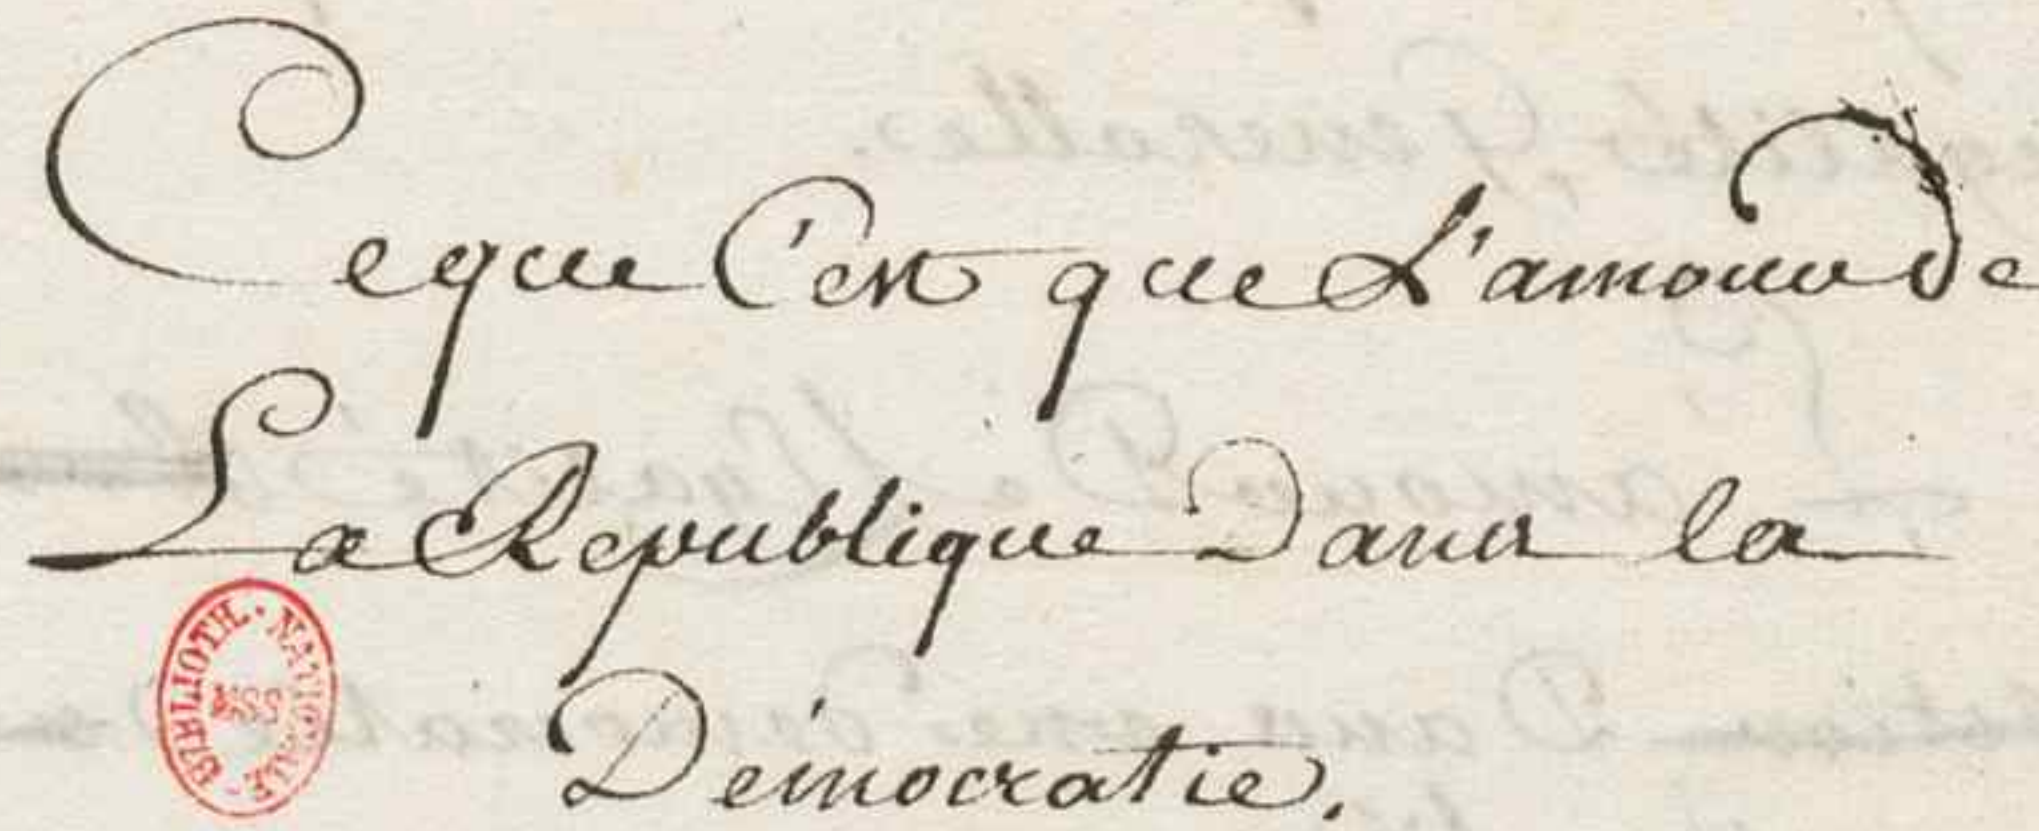 Ce que C'est que L'amour de
La Republique Dans la
Démocratie.
BIBLIOTH. NATIONALE
MSS